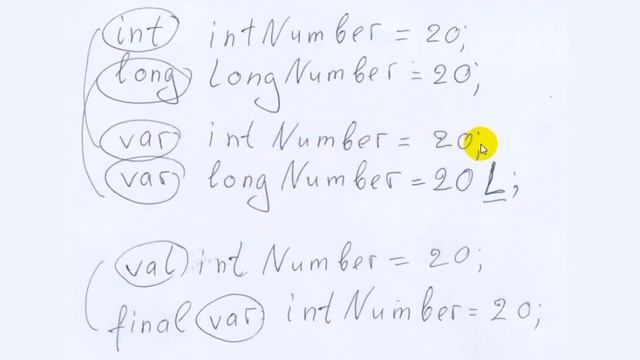 int intNumber = 20;
long longNumber = 20;
var intNumber = 20;
var longNumber = 20L;
val intNumber = 20;
final var intNumber = 20;